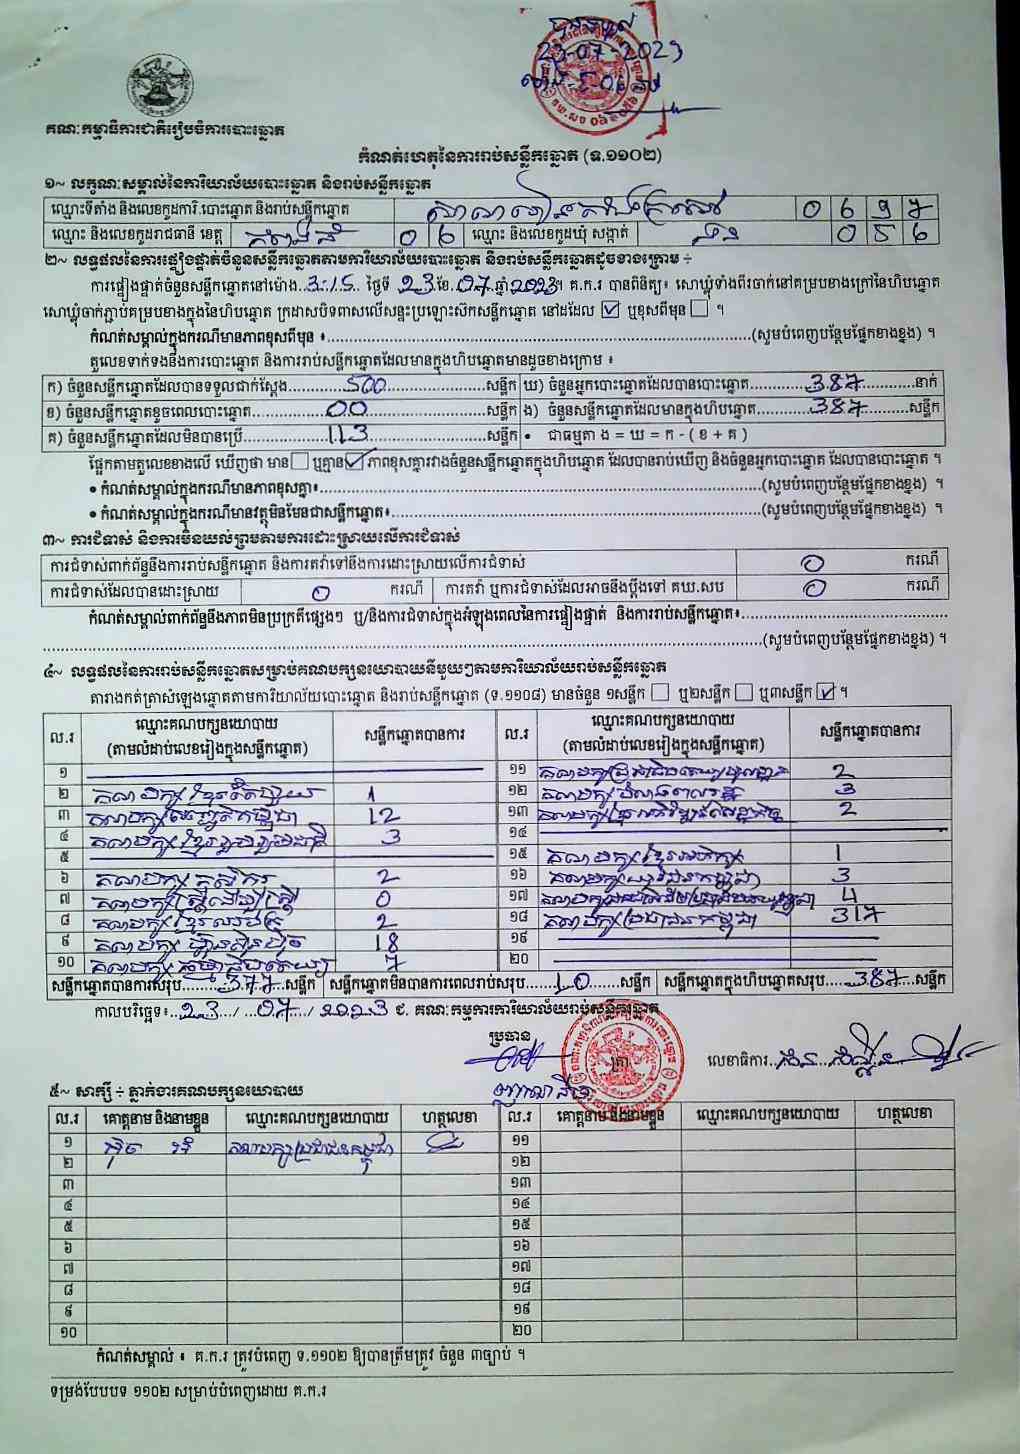 បានឃើញ
23-07-2023
គណៈកម្មាធិការជាតិរៀបចំការបោះឆ្នោត
កំណត់ហេតុនៃការរាប់សន្លឹកឆ្នោត (ទ.១១០២)
១~ លក្ខណៈសម្គាល់នៃការិយាល័យបោះឆ្នោត និងរាប់សន្លឹកឆ្នោត
ឈ្មោះទីតាំង និងលេខកូដការិ.បោះឆ្នោត និងរាប់សន្លឹកឆ្នោត សាលារៀន 0 6 9 7
ឈ្មោះ និងលេខកូដរាជធានី ខេត្ត កំពង់ធំ 0 6 ឈ្មោះ និងលេខកូដឃុំ សង្កាត់ 0 5 6
២~ លទ្ធផលនៃការផ្ទៀងផ្ទាត់ចំនួនសន្លឹកឆ្នោតតាមការិយាល័យបោះឆ្នោត និងរាប់សន្លឹកឆ្នោតដូចខាងក្រោម ÷
ការផ្ទៀងផ្ទាត់ចំនួនសន្លឹកឆ្នោតនៅម៉ោង..3:15.. ថ្ងៃទី 23 ខែ.07.ឆ្នាំ2023។ គ.ក.រ បានពិនិត្យ៖ សោឃ្លុំទាំងពីរចាក់នៅគម្របខាងក្រៅនៃហិបឆ្នោត
សោឃ្លុំចាក់ភ្ជាប់គម្របខាងក្នុងនៃហិបឆ្នោត ក្រដាសបិទពាសលើសន្ទះប្រឡោះស៊កសន្លឹកឆ្នោត នៅដដែល ☑ ឬខុសពីមុន ☐ ។
កំណត់សម្គាល់ក្នុងករណីមានភាពខុសពីមុន ៖..........(សូមបំពេញបន្ថែមផ្នែកខាងខ្នង) ។
តួលេខទាក់ទងនឹងការបោះឆ្នោត និងការរាប់សន្លឹកឆ្នោតដែលមានក្នុងហិបឆ្នោតមានដូចខាងក្រោម ៖
ក) ចំនួនសន្លឹកឆ្នោតដែលបានទទួលជាក់ស្តែង..........500..........សន្លឹក ឃ) ចំនួនអ្នកបោះឆ្នោតដែលបានបោះឆ្នោត..........387..........នាក់
ខ) ចំនួនសន្លឹកឆ្នោតខូចពេលបោះឆ្នោត..........00..........សន្លឹក ង) ចំនួនសន្លឹកឆ្នោតដែលមានក្នុងហិបឆ្នោត..........387..........សន្លឹក
គ) ចំនួនសន្លឹកឆ្នោតដែលមិនបានប្រើ..........113..........សន្លឹក • ជាធម្មតា ង = ឃ = ក - ( ខ + គ )
ផ្អែកតាមតួលេខខាងលើ ឃើញថា មាន ☐ ឬគ្មាន ☑ ភាពខុសគ្នារវាងចំនួនសន្លឹកឆ្នោតក្នុងហិបឆ្នោត ដែលបានរាប់ឃើញ និងចំនួនអ្នកបោះឆ្នោត ដែលបានបោះឆ្នោត ។
• កំណត់សម្គាល់ក្នុងករណីមានភាពខុសគ្នា៖..........(សូមបំពេញបន្ថែមផ្នែកខាងខ្នង) ។
• កំណត់សម្គាល់ក្នុងករណីមានវត្ថុមិនមែនជាសន្លឹកឆ្នោត៖..........(សូមបំពេញបន្ថែមផ្នែកខាងខ្នង) ។
៣~ ការជំទាស់ និងការមិនយល់ព្រមតាមការដោះស្រាយលើការជំទាស់
ការជំទាស់ពាក់ព័ន្ធនឹងការរាប់សន្លឹកឆ្នោត និងការតវ៉ាទៅនឹងការដោះស្រាយលើការជំទាស់ 0 ករណី
ការជំទាស់ដែលបានដោះស្រាយ 0 ករណី ការតវ៉ា ឬការជំទាស់ដែលអាចនឹងប្តឹងទៅ គឃ.សប 0 ករណី
កំណត់សម្គាល់ពាក់ព័ន្ធនឹងភាពមិនប្រក្រតីផ្សេងៗ ឬ/និងការជំទាស់ក្នុងអំឡុងពេលនៃការផ្ទៀងផ្ទាត់ និងការរាប់សន្លឹកឆ្នោត៖..........
..........(សូមបំពេញបន្ថែមផ្នែកខាងខ្នង) ។
៤~ លទ្ធផលនៃការរាប់សន្លឹកឆ្នោតសម្រាប់គណបក្សនយោបាយនីមួយៗតាមការិយាល័យរាប់សន្លឹកឆ្នោត
តារាងកត់ត្រាសំឡេងឆ្នោតតាមការិយាល័យបោះឆ្នោត និងរាប់សន្លឹកឆ្នោត (ទ.១១០៨) មានចំនួន ១សន្លឹក ☐ ឬ២សន្លឹក ☐ ឬ៣សន្លឹក ☑ ។
ល.រ ឈ្មោះគណបក្សនយោបាយ (តាមលំដាប់លេខរៀងក្នុងសន្លឹកឆ្នោត) សន្លឹកឆ្នោតបានការ ល.រ ឈ្មោះគណបក្សនយោបាយ (តាមលំដាប់លេខរៀងក្នុងសន្លឹកឆ្នោត) សន្លឹកឆ្នោតបានការ
១ ១១ គណបក្សប្រជាធិបតេយ្យមូលដ្ឋាន 2
២ គណបក្សខ្មែរតែមួយ 1 ១២ គណបក្សសំបុកឃ្មុំ 3
៣ 12 ១៣ 2
៤ គណបក្សខ្មែរ 3 ១៤
៥ ១៥ គណបក្សខ្មែរអភិរក្ស 1
៦ គណបក្សកសិករ 2 ១៦ គណបក្សយុវជនកម្ពុជា 3
៧ គណបក្សស្ត្រីដើម្បីស្ត្រី 0 ១៧ 4
៨ គណបក្សខ្មែរ 2 ១៨ គណបក្សប្រជាជនកម្ពុជា 317
៩ គណបក្សហ៊្វុនស៊ិនប៉ិច 18 ១៩
១០ គណបក្សធម្មាធិបតេយ្យ 7 ២០
សន្លឹកឆ្នោតបានការសរុប..........377..សន្លឹក សន្លឹកឆ្នោតមិនបានការពេលរាប់សរុប..........10.......សន្លឹក សន្លឹកឆ្នោតក្នុងហិបឆ្នោតសរុប.....387....សន្លឹក
កាលបរិច្ឆេទ៖..23../..07../2023 ជ. គណៈកម្មការការិយាល័យរាប់សន្លឹកឆ្នោត
ប្រធាន
ត្រា
លេខាធិការ
៥~ សាក្សី ÷ ភ្នាក់ងារគណបក្សនយោបាយ
ល.រ គោត្តនាម និងនាមខ្លួន ឈ្មោះគណបក្សនយោបាយ ហត្ថលេខា ល.រ គោត្តនាម និងនាមខ្លួន ឈ្មោះគណបក្សនយោបាយ ហត្ថលេខា
១ គណបក្សប្រជាជនកម្ពុជា ១១
២ ១២
៣ ១៣
៤ ១៤
៥ ១៥
៦ ១៦
៧ ១៧
៨ ១៨
៩ ១៩
១០ ២០
កំណត់សម្គាល់ ៖ គ.ក.រ ត្រូវបំពេញ ទ.១១០២ ឱ្យបានត្រឹមត្រូវ ចំនួន ៣ច្បាប់ ។
ទម្រង់បែបបទ ១១០២ សម្រាប់បំពេញដោយ គ.ក.រ